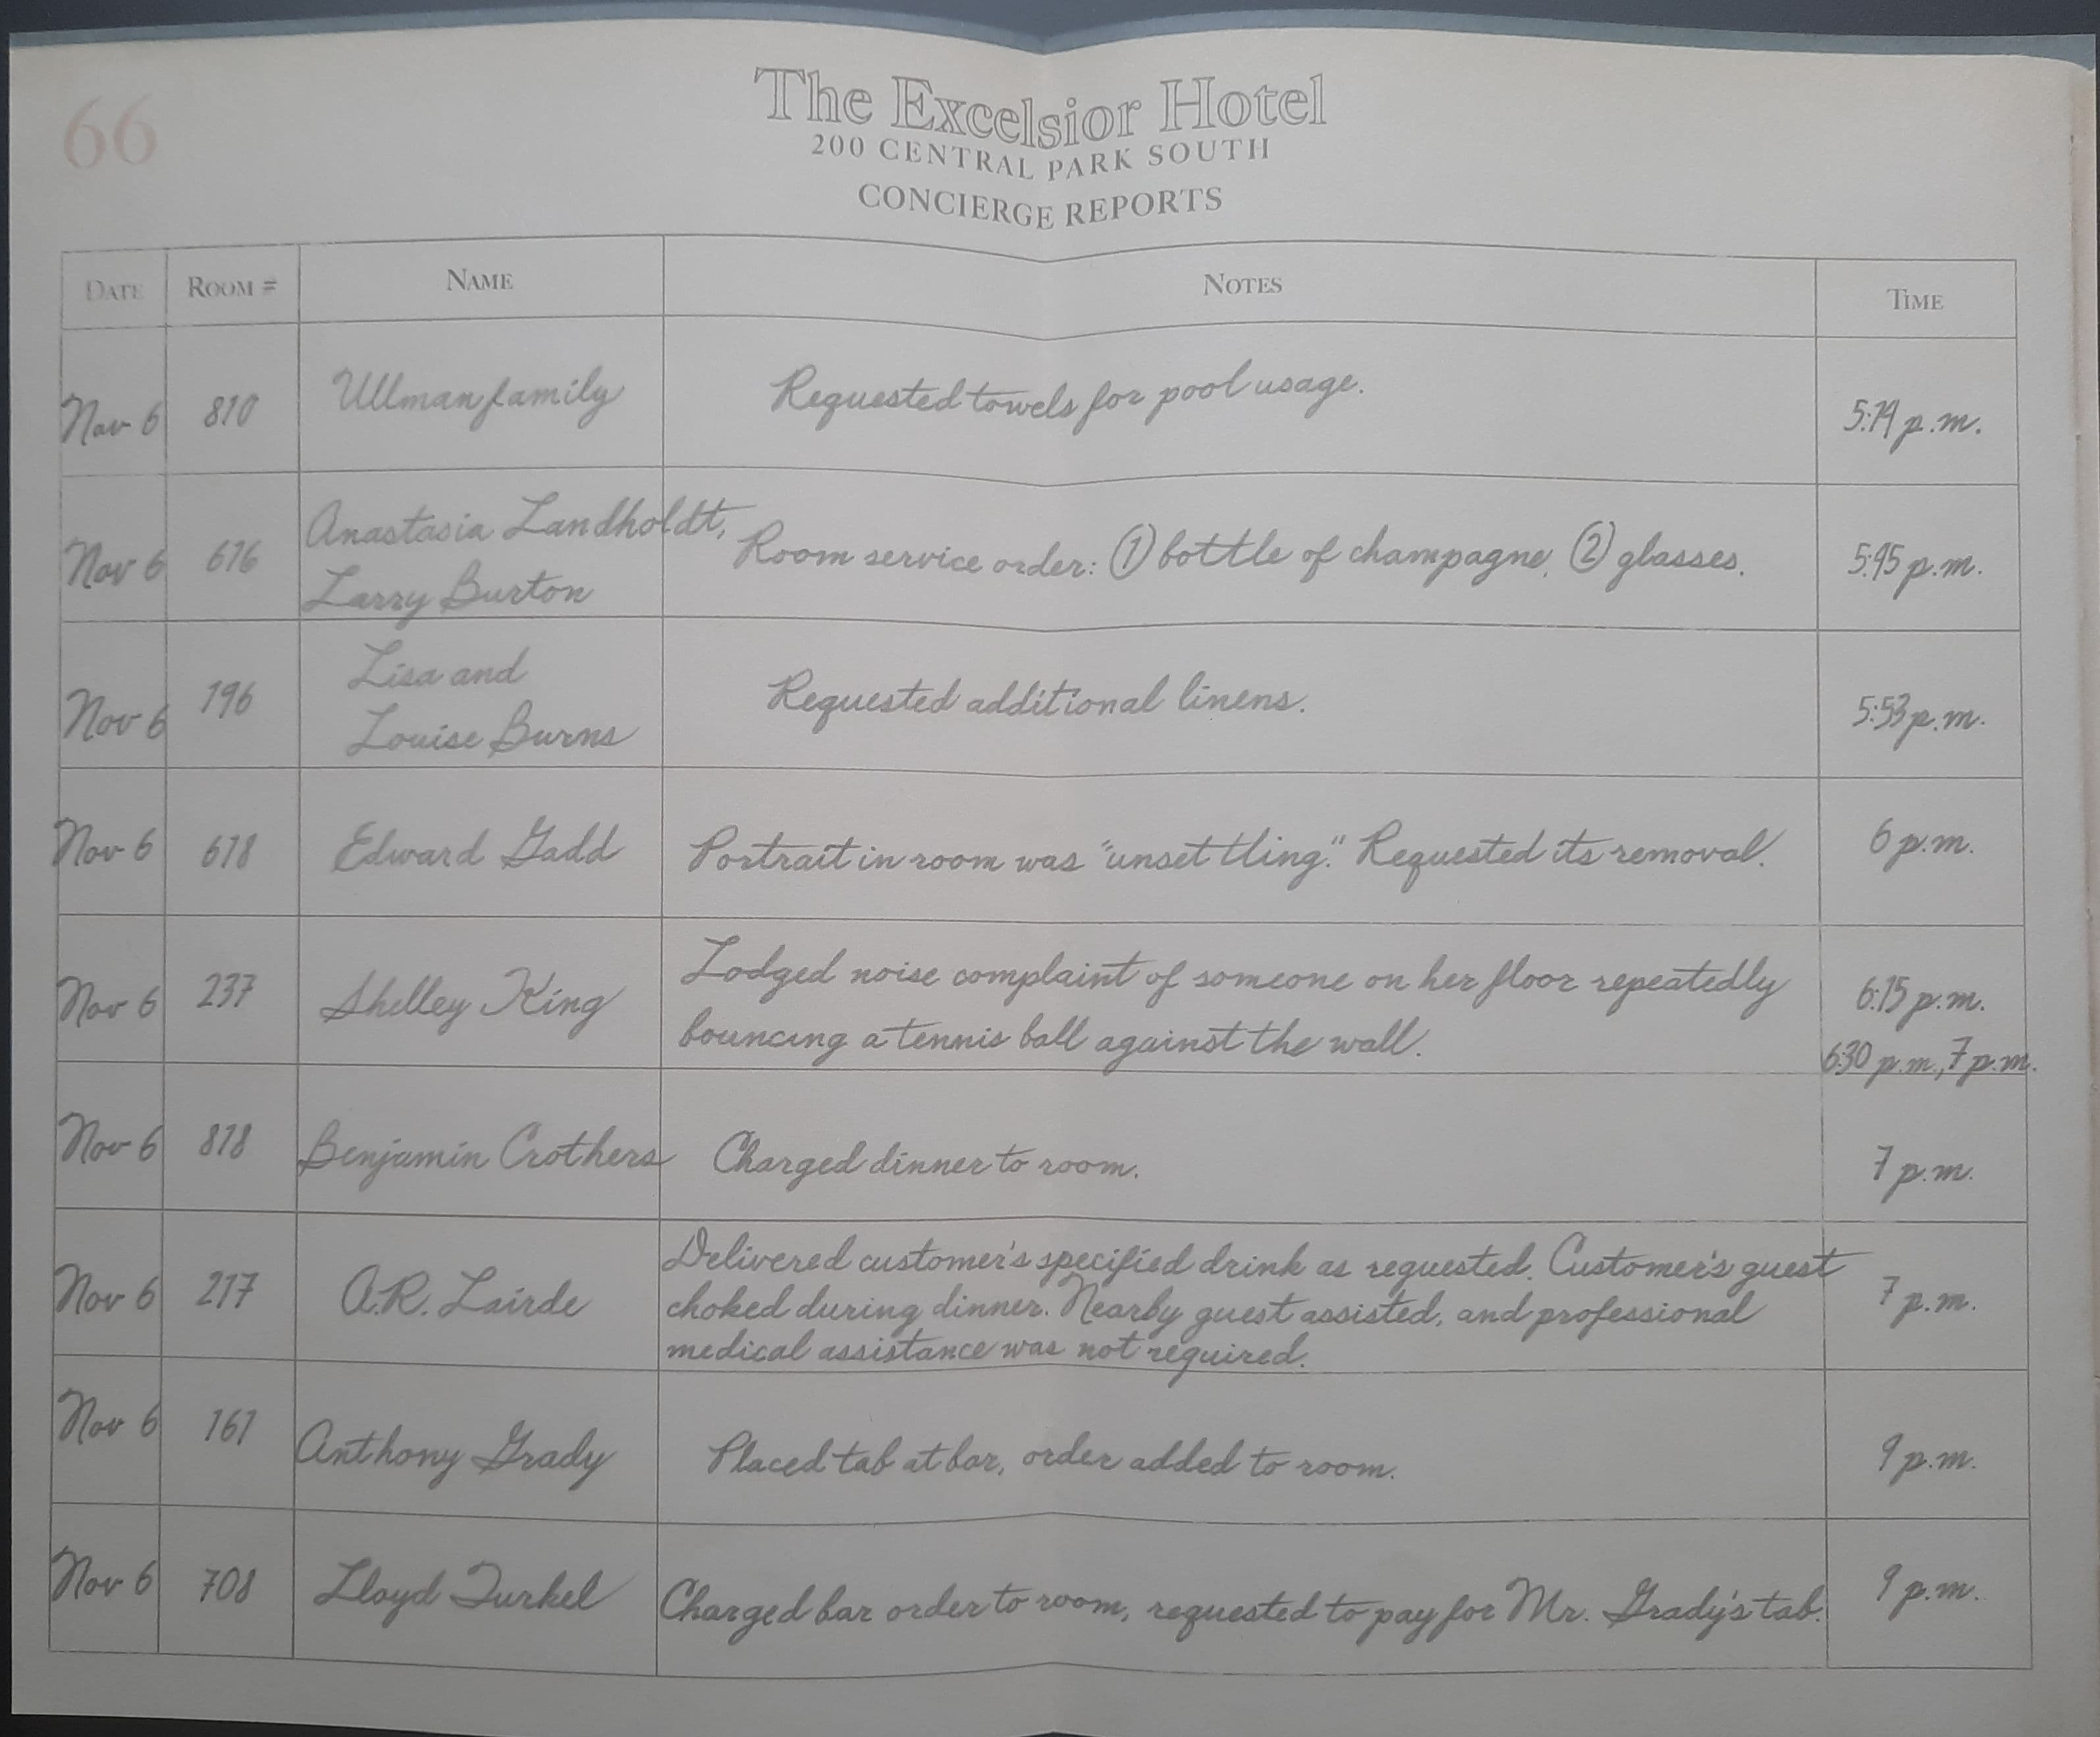 66
The Excelsior Hotel
200 CENTRAL PARK SOUTH
CONCIERGE REPORTS
DATE ROOM # NAME NOTES TIME
Nov 6 810 Ullman family Requested towels for pool usage. 5:14 p.m.
Nov 6 616 Anastasia Landholdt, Room service order: ① bottle of champagne, ② glasses. 5:45 p.m.
Larry Burton
Nov 6 196 Lisa and Requested additional linens. 5:53 p.m.
Louise Burns
Nov 6 618 Edward Gadd Portrait in room was "unsettling." Requested its removal. 6 p.m.
Nov 6 237 Shelley King Lodged noise complaint of someone on her floor repeatedly 6:15 p.m.
bouncing a tennis ball against the wall. 6:30 p.m., 7 p.m.
Nov 6 818 Benjamin Crothers Charged dinner to room. 7 p.m.
Nov 6 217 A.R. Lairde Delivered customer's specified drink as requested. Customer's guest 7 p.m.
choked during dinner. Nearby guest assisted, and professional
medical assistance was not required.
Nov 6 161 Anthony Grady Placed tab at bar, order added to room. 9 p.m.
Nov 6 708 Lloyd Turkel Charged bar order to room, requested to pay for Mr. Grady's tab. 9 p.m.